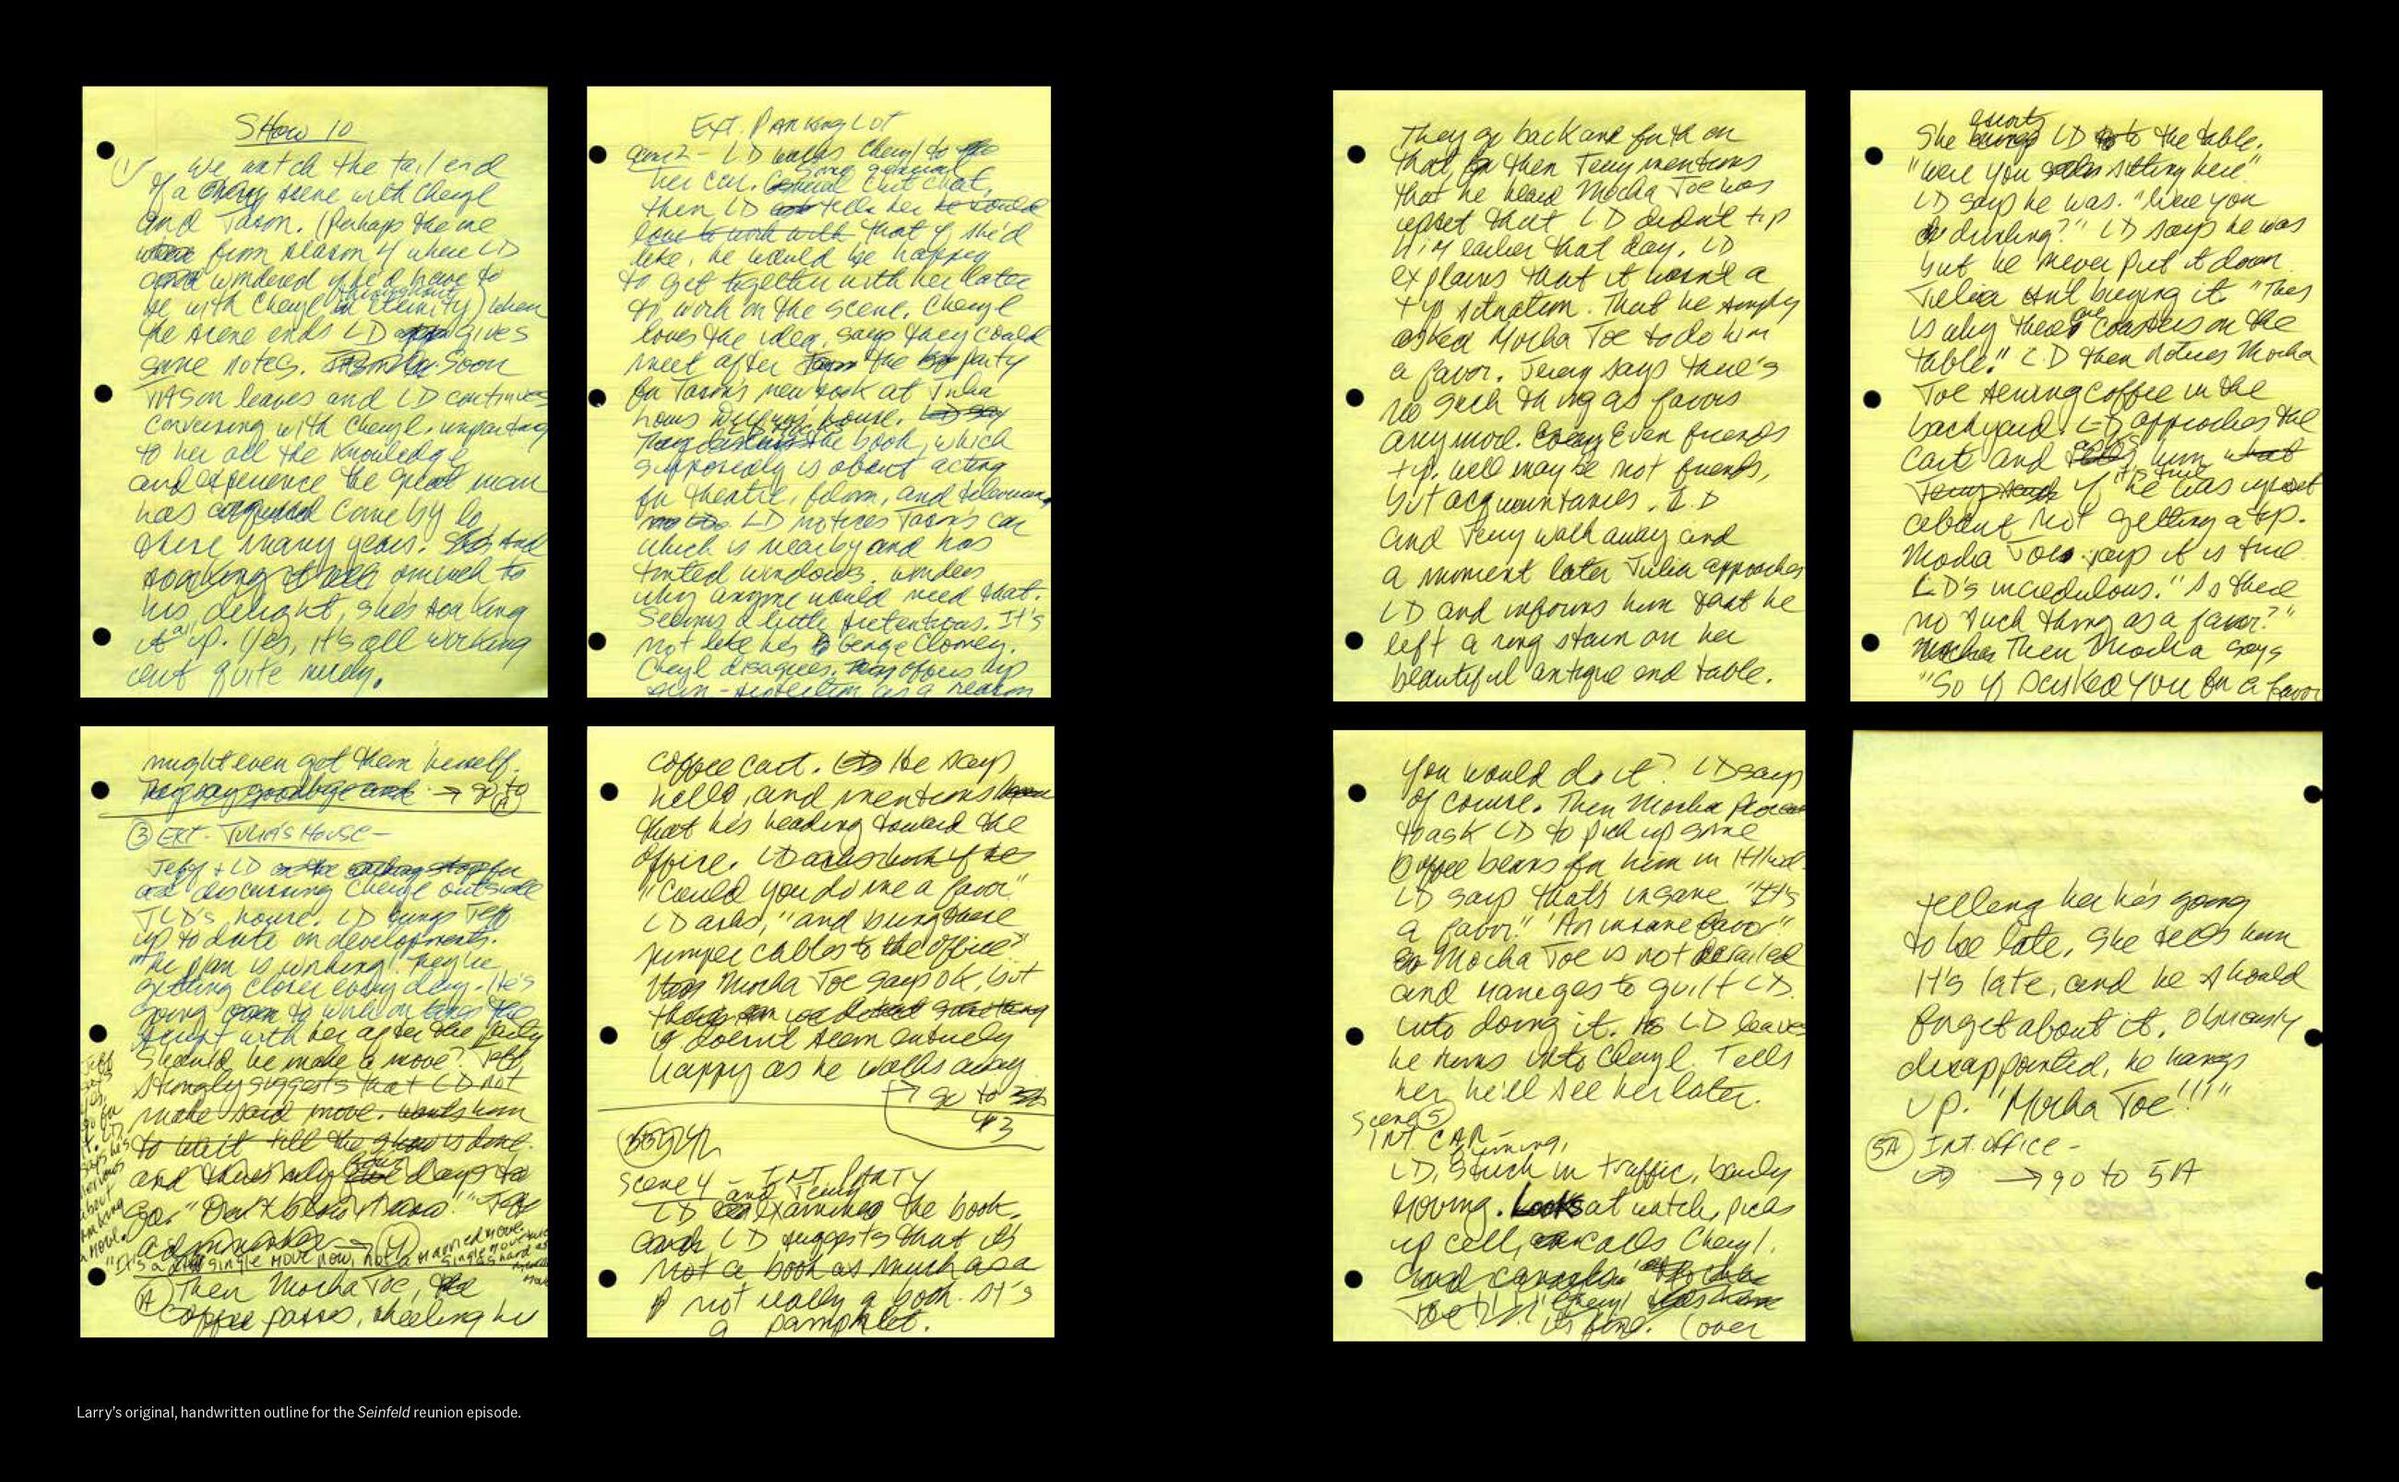 SHOW 10
① We watch the tail end
of a scene with Cheryl
and Jason. (Perhaps the one
from season 4 where LD
wondered if he'd have to
be with Cheryl throughout eternity) When
the scene ends LD gives
some notes. Soon
Jason leaves and LD continues
conversing with Cheryl, imparting
to her all the knowledge
and experience the great man
has come by lo
these many years. And
much to
his delight, she's soaking
it all up. Yes, it's all working
out quite nicely.
EXT. PARKING LOT
LD walks Cheryl to
her car. Some general chit chat,
then LD tells her
that if she'd
like, he would be happy
to get together with her later
to work on the scene. Cheryl
loves the idea, says they could
meet after the party
for Jason's new book at Julia
Louis Dreyfus' house.
the book, which
supposedly is about acting
for theatre, film, and television.
LD notices Jason's car
which is nearby and has
tinted windows. Wonders
why anyone would need that.
Seems a little pretentious. It's
not like he's George Clooney.
Cheryl disagrees. Offers up
sun-protection as a reason
might even get them herself.
They say goodbye and → go to Ⓐ
③ EXT. JULIA'S HOUSE -
Jeff + LD
are discussing Cheryl outside
JLD's house. LD brings Jeff
up to date on developments.
The plan is working. They're
getting closer every day. He's
going to work on the
script with her after the party
Should he make a move? Jeff
strongly suggests that LD not
make said move. wants him
to wait till the show is done.
and there's only four days to
go. "Don't blow it now!" Jeff
"It's a single move now, not a married move.
Ⓐ Then Mocha Joe, the
coffee passes, wheeling his
coffee cart. He says
hello, and mentions
that he's heading toward the
office.
"Could you do me a favor"
LD asks, "and bring these
jumper cables to the office?"
Mocha Joe says ok, but
doesn't seem entirely
happy as he walks away.
→ go to
#3
Scene 4 - INT PARTY
LD and Jerry examine the book.
LD suggests that it's
not a book as much as a
not really a book. It's
a pamphlet.
They go back and forth on
that, then Jerry mentions
that he heard Mocha Joe was
upset that LD didn't tip
him earlier that day. LD
explains that it wasn't a
tip situation. That he simply
asked Mocha Joe to do him
a favor. Jerry says there's
no such thing as favors
anymore. Even friends
tip. Well maybe not friends,
but acquaintances. LD
and Jerry walk away and
a moment later Julia approaches
LD and informs him that he
left a ring stain on her
beautiful antique end table.
She escorts LD to the table.
"Were you sitting here"
LD says he was. "Were you
drinking?" LD says he was
but he never put it down.
Julia isn't buying it. "This
is why there are coasters on the
table." LD then notices Mocha
Joe serving coffee in the
backyard. LD approaches the
cart and asks him
if it's true he was upset
about not getting a tip.
Mocha Joe says it is true.
LD's incredulous. "Is there
no such thing as a favor?"
Then Mocha says
"So if I asked you for a favor
you would do it? LD says
of course. Then Mocha
to ask LD to pick up some
coffee beans for him in
LD says that's insane. "It's
a favor." "An insane favor"
Mocha Joe is not derailed
and manages to guilt LD
into doing it. As LD leaves
he runs into Cheryl. Tells
her he'll see her later.
Scene 5
INT CAR -
LD, stuck in traffic, barely
moving. Looks at watch, picks
up cell, calls Cheryl.
(over
telling her he's going
to be late. She tells him
it's late, and he should
forget about it. Obviously
disappointed, he hangs
up. "Mocha Joe!!!"
5A INT. OFFICE -
→ go to 5A
Larry's original, handwritten outline for the Seinfeld reunion episode.